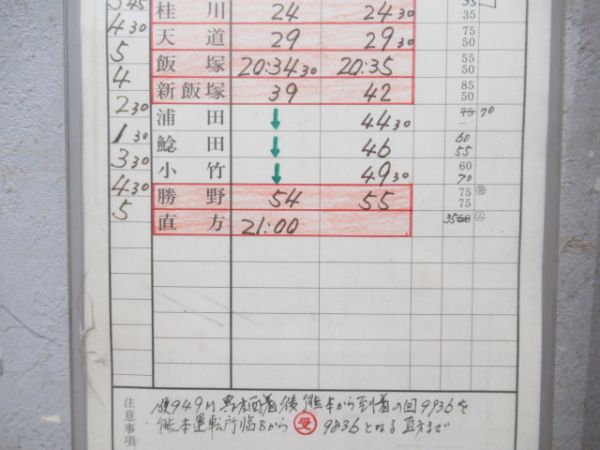 345 桂川 24 24 30 35
4 30 天道 29 29 30 75 50
5 飯塚 20:34 30 20:35 55 50
4 新飯塚 39 42 85 50
2 30 浦田 ↓ 44 30 75 70
1 30 鯰田 ↓ 46 60 55
3 30 小竹 ↓ 49 30 60 70
4 30 勝野 54 55 75 75
5 直方 21:00 35
注意事項 949 後熊本から到着の回9936を
熊本運転所 から 受 9836となる 直方まで